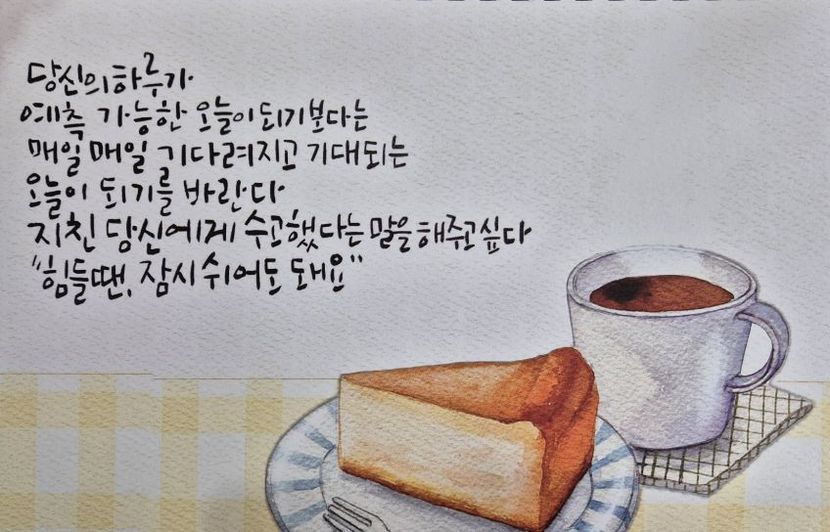 당신의 하루가
예측 가능한 오늘이 되기보다는
매일 매일 기다려지고 기대되는
오늘이 되기를 바란다
지친 당신에게 수고했다는 말을 해주고 싶다
"힘들땐, 잠시 쉬어도 돼요"